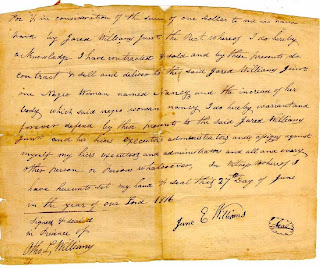 For & in consideration of the Sum of one dollar to me in hand
paid by Jared Williams Junr the Rect whereof I do hereby
acknowledge I have contracted & sold and by these presents do
contract & sell and deliver to they said Jared Williams Junr
one Negro Woman named Nancy and the increse of her
body which said negro woman nancy I do hereby warrant and
forever defend by these presents to the said Jared Williams
Junr and his heirs Executors administrators and assigns against
myself my heirs executors and administrators and all and every
other person or persons whatsoever, In Witness whereof I
have hereunto set my hand & seal this 27th Day of June
in the year of our Lord 1816
Signed & sealed
in Presence of
Jane E Williams
Seal
Otho L. Williams